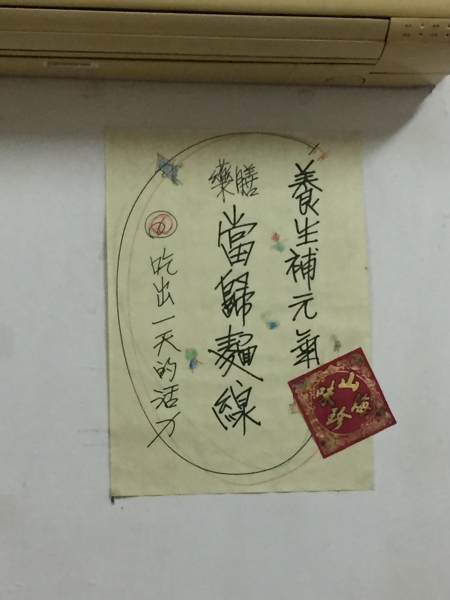 養生補元氣
藥膳
當歸麵線
吃出一天的活力
山珍海味